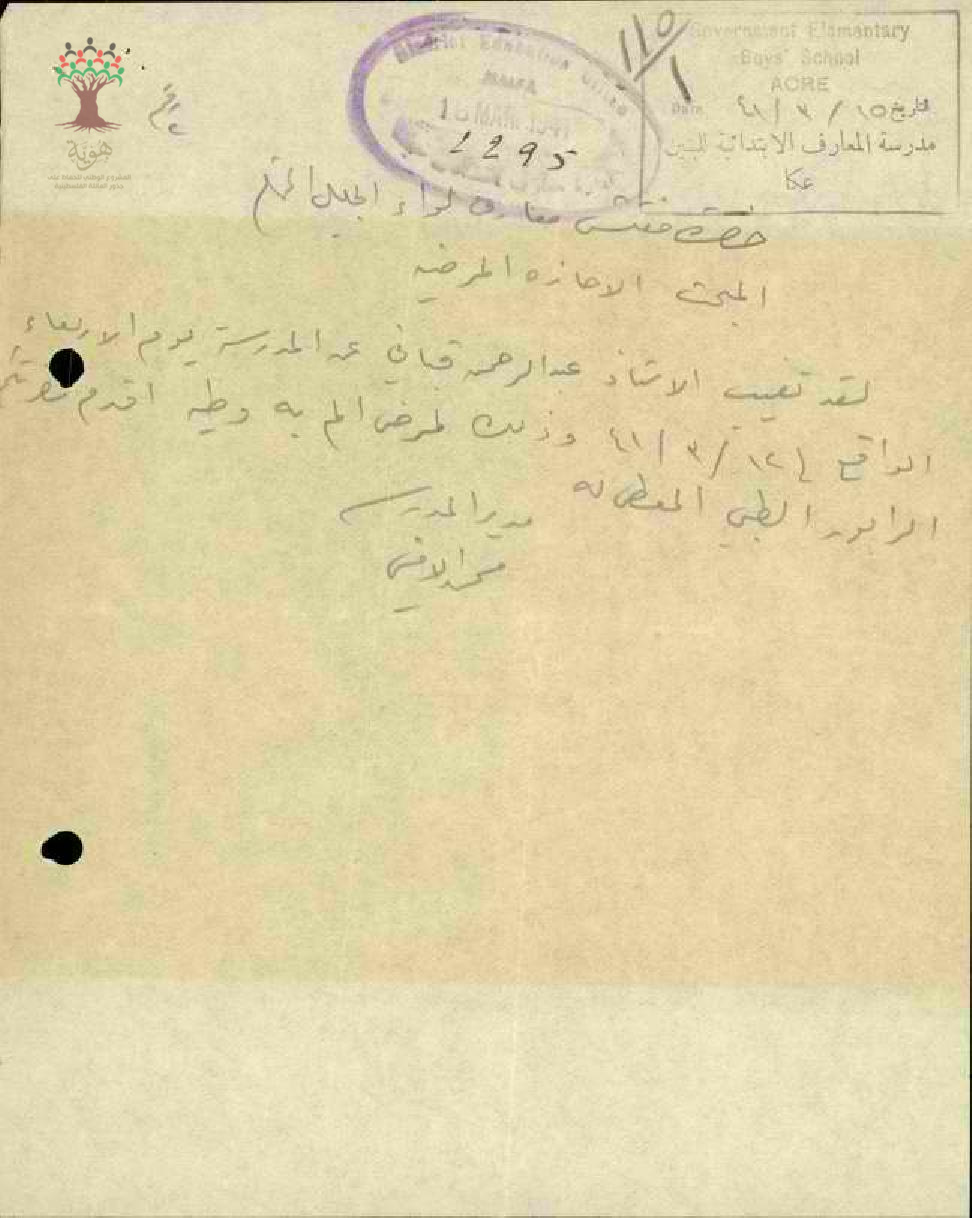 هوية
المشروع الوطني للحفاظ على
جذور العائلة الفلسطينية
District Education Office
HAIFA
16 MAR. 1941
1295
110/1
Government Elementary
Boys School
ACRE
Date ٤١ / ٣ / ١٥ تاريخ
مدرسة المعارف الابتدائية للبنين
عكا
حضرة مفتش معارف لواء الجليل المحترم
المبحث الاجازه المرضيه
لقد تغيب الاستاذ عبدالرحمن قباني عن المدرسة يوم الاربعاء
الواقع في ١٢ / ٣ / ٤١ وذلك لمرض الم به وطيه اقدم لحضرتكم
الرابور الطبي المعطى له
مدير المدرسه